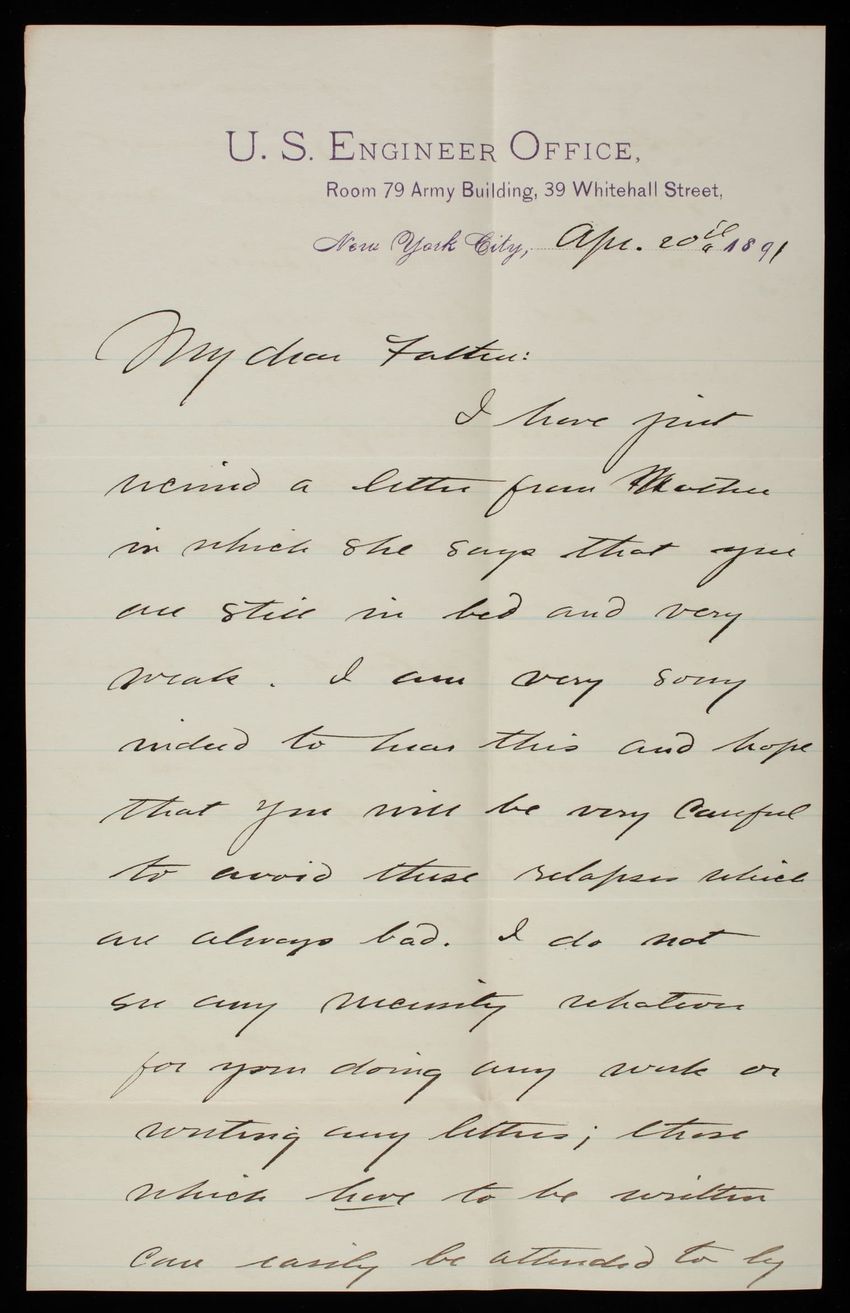 U. S. ENGINEER OFFICE,
Room 79 Army Building, 39 Whitehall Street,
New York City, Apr. 20th 1891
My dear Father:
I have just
received a letter from Mother
in which she says that you
are still in bed and very
weak. I am very sorry
indeed to hear this and hope
that you will be very careful
to avoid these relapses which
are always bad. I do not
see any necessity whatever
for your doing any work or
writing any letters; those
which have to be written
can easily be attended to by